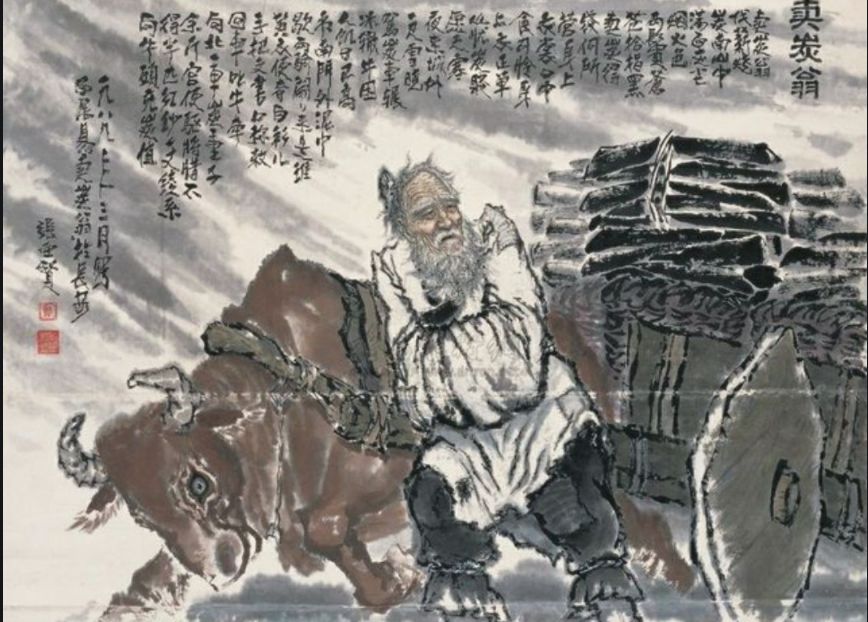 卖炭翁
卖炭翁
伐薪烧
炭南山中
满面尘灰
烟火色
两鬓苍
苍十指黑
卖炭得
钱何所
营身上
衣裳口中
食可怜身
上衣正单
心忧炭贱
愿天寒
夜来城外
一尺雪晓
驾炭车辗
冰辙牛困
人饥日已高
市南门外泥中
歇两骑翩翩来是谁
黄衣使者白衫儿
手把文书口称敕
回车叱牛牵
向北一车炭重千
余斤官使驱将惜不
得半匹红纱一丈绫系
向牛头充炭值
一九八九 月写
居易卖炭翁於长沙